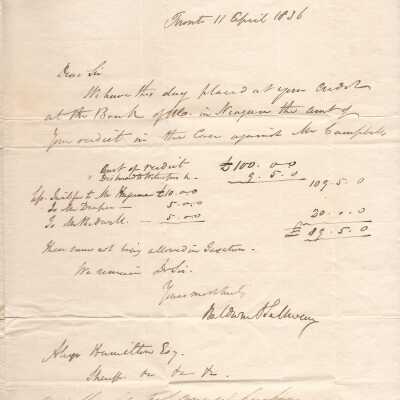 Toronto 11 April 1836
Dear Sir
We have this day placed at your credit
at the Bank of U.C. in Niagara the amt of
your verdict in the case against Mr Campbell
Amt of verdict £100.0.0
9.5.0
109.5.0
Less to Mr Hagerman £10.0.0
To Mr Draper — 5.0.0
To Mr — 5.0.0
20.0.0
£89.5.0
these sums not being allowed in Taxation.
We remain Dr Sir
Yours most truly
Baldwin & Sullivan
Alexr Hamilton Esq.
Sheriff &c &c &c